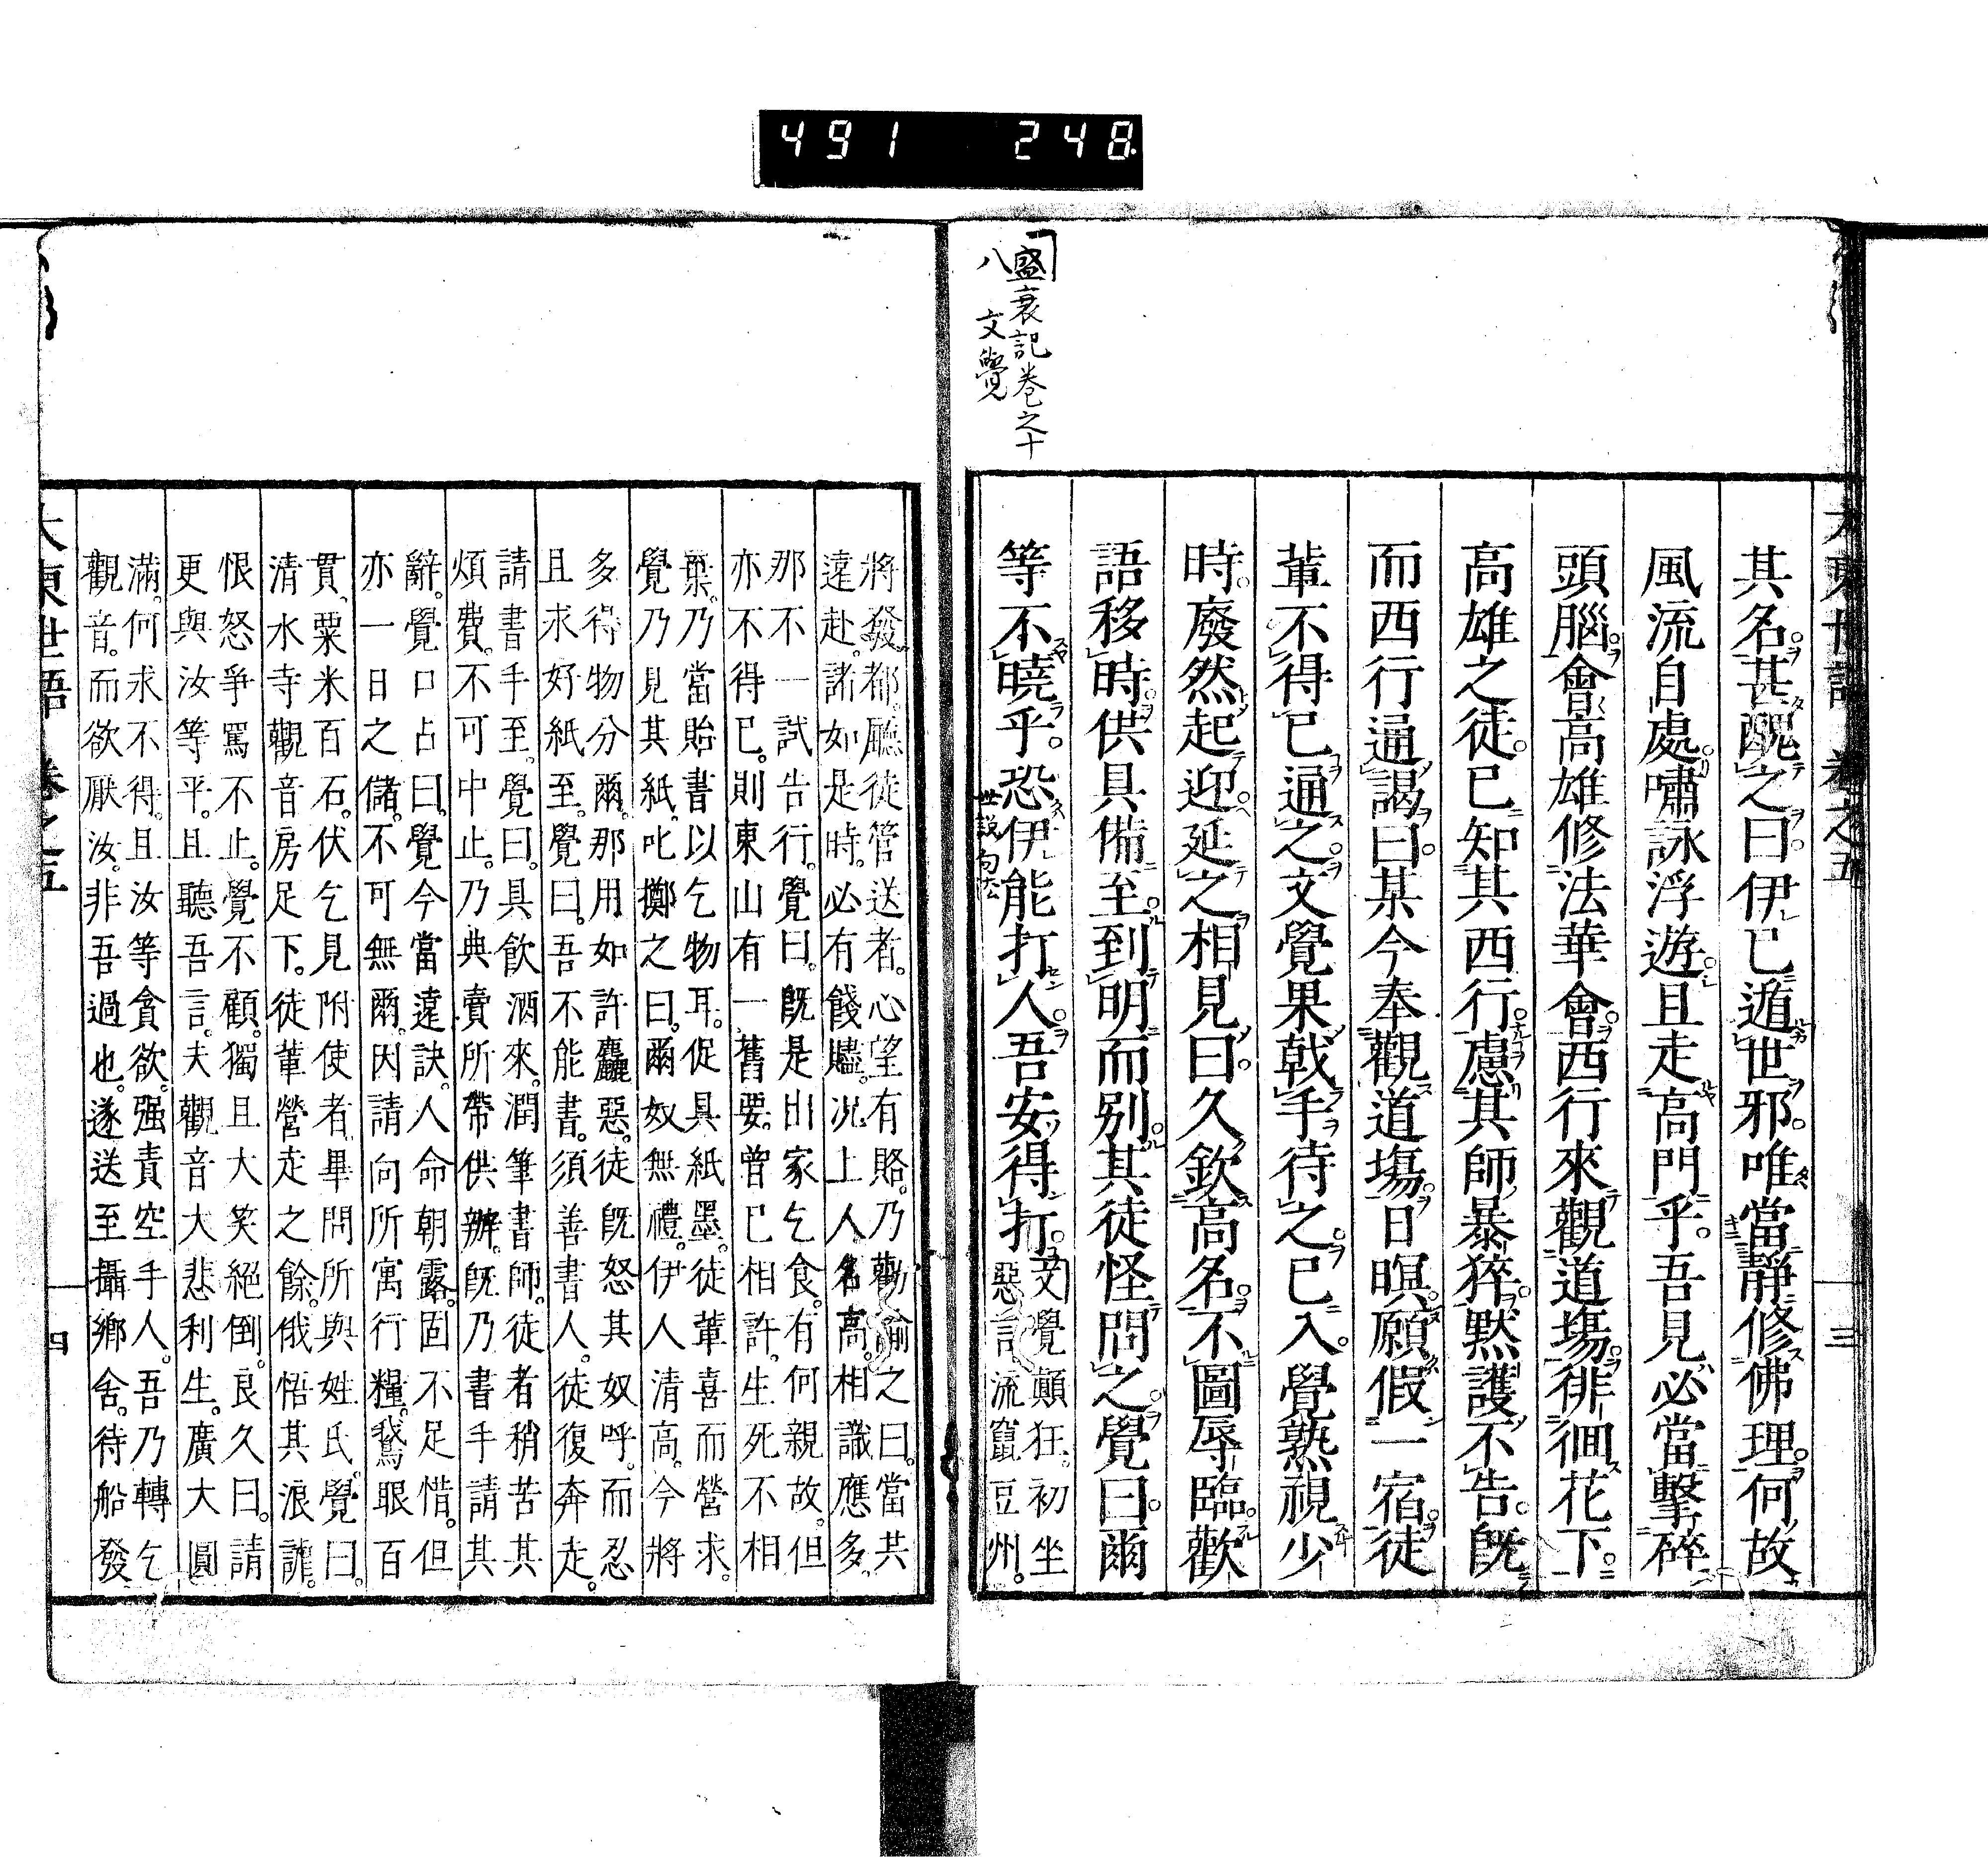 491 248
盛衰記卷之十
八 文覺
大東世語 卷之五 三
其名甚醜之曰伊已遁世邪唯當靜修佛理何故
風流自處嘯詠浮遊且走高門乎吾見必當擊碎
頭腦會高雄修法華會西行來觀道場徘徊花下
高雄之徒已知其西行慮其師暴猝默護不告既
而西行通謁曰某今奉觀道場日暝願假一宿徒
輩不得已通之文覺果戟手待之已入覺熟視少
時廢然起迎延之相見曰久欽高名不圖辱臨歡
語移時供具備至到明而別其徒怪問之覺曰爾
等不曉乎恐伊能打人吾安得打
世說句法
文覺顛狂初坐
惡言流竄豆州
將發都廳徒管送者心望有賂乃勸諭之曰當共
遠赴諸如是時必有餞贐況上人名高相識應多
那不一試告行覺曰既是出家乞食有何親故但
亦不得已則東山有一舊要曾已相許生死不相
棄乃當貽書以乞物耳促具紙墨徒輩喜而營求
覺乃見其紙叱擲之曰爾奴無禮伊人清高今將
多得物分爾那用如許麤惡徒既怒其奴呼而忍
且求好紙至覺曰吾不能書須善書人徒復奔走
請書手至覺曰具飲酒來潤筆書師徒者稍苦其
煩費不可中止乃典賣所帶供辨既乃書手請其
辭覺口占曰覺今當遠訣人命朝露固不足惜但
亦一日之儲不可無爾因請向所寓行糧鵞眼百
貫粟米百石伏乞見附使者畢問所與姓氏覺曰
清水寺觀音房足下徒輩營走之餘俄悟其浪謔
恨怒爭罵不止覺不顧獨且大笑絕倒良久曰請
更與汝等平且聽吾言夫觀音大悲利生廣大圓
滿何求不得且汝等貪欲强責空手人吾乃轉乞
觀音而欲厭汝非吾過也遂送至攝鄉舍待船發
大東世語 卷之五 四